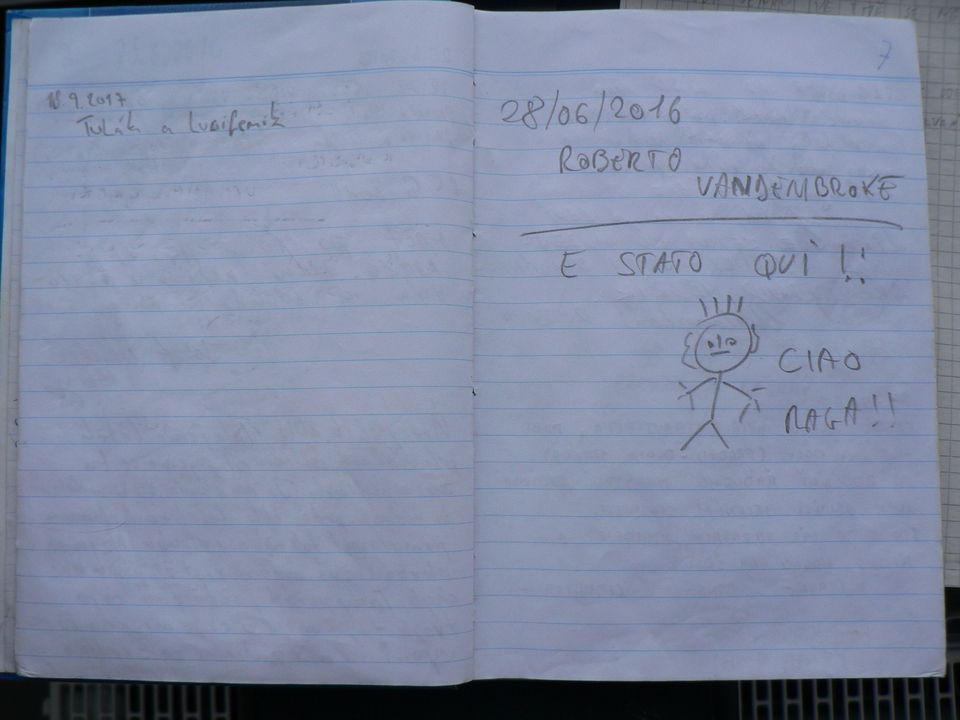 18.9.2017
Tulák a Luciferník
7
28/06/2016
ROBERTO
VANDEMBROKE
E STATO QUÌ !!
CIAO
RAGA!!